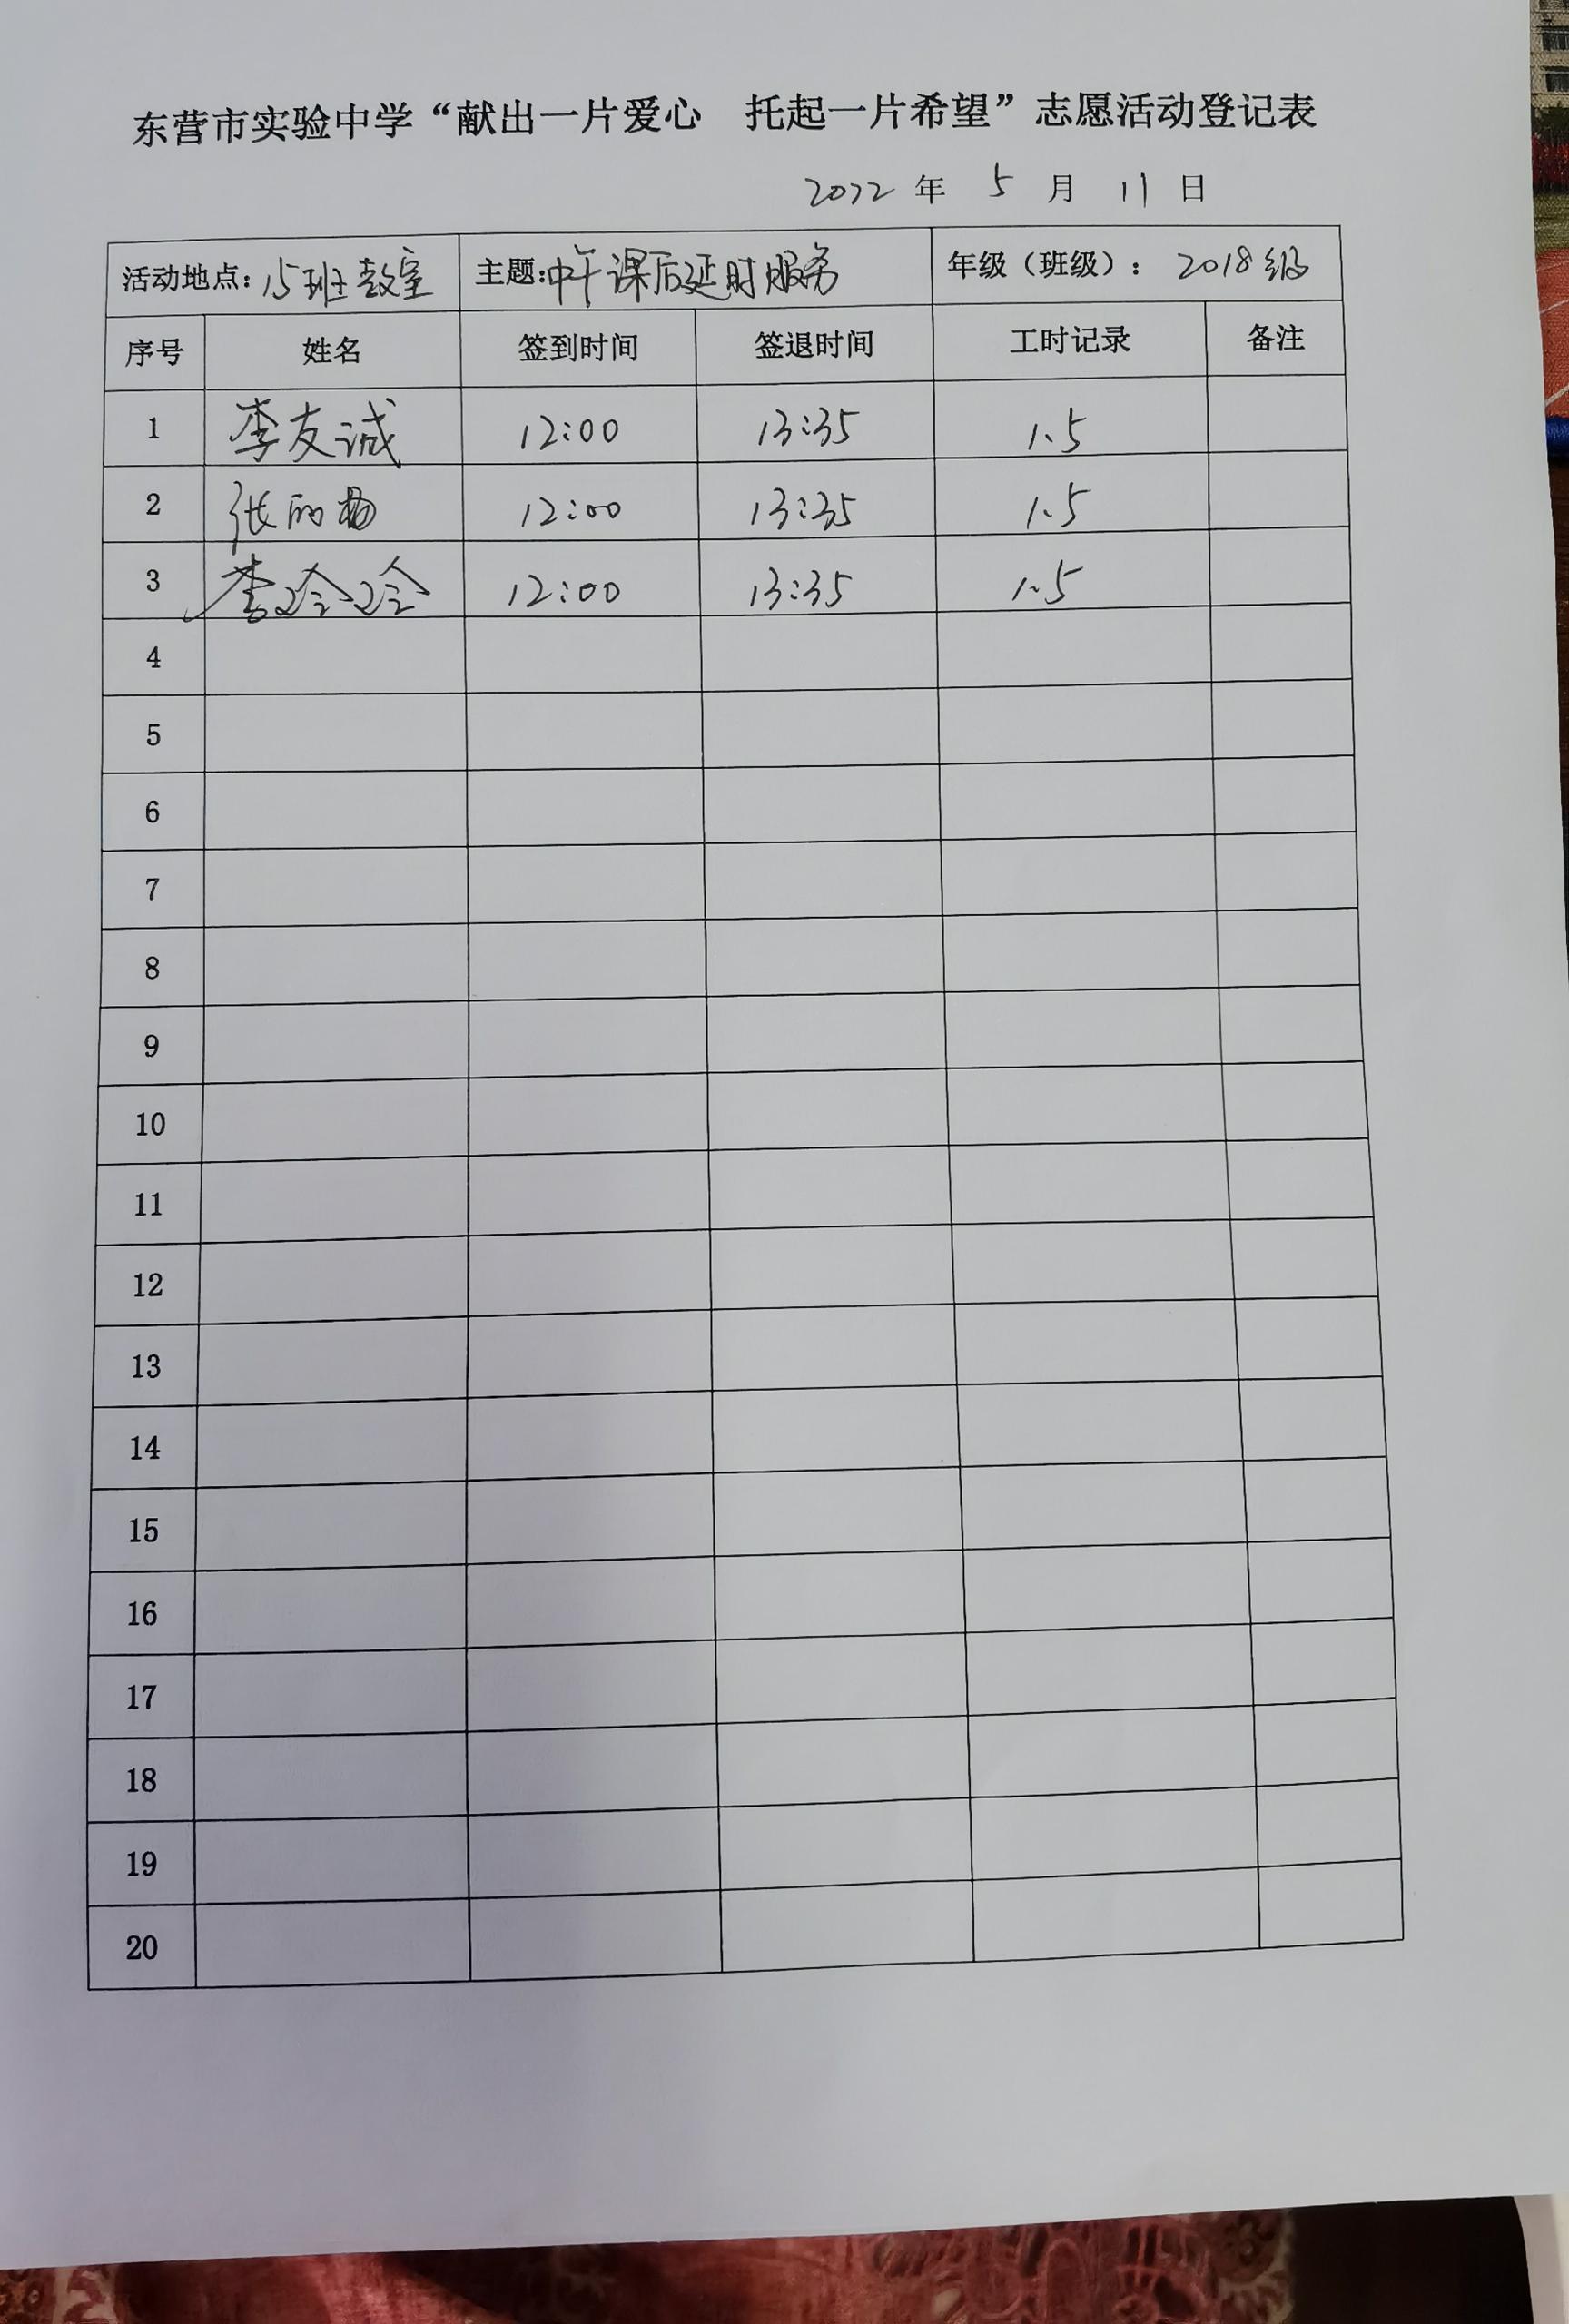 东营市实验中学“献出一片爱心 托起一片希望”志愿活动登记表
2022 年 5 月 11 日
活动地点：15班教室 主题：中午课后延时服务 年级（班级）： 2018级
序号 姓名 签到时间 签退时间 工时记录 备注
1 李友诚 12:00 13:35 1.5
2 张 12:00 13:35 1.5
3 李玲玲 12:00 13:35 1.5
4
5
6
7
8
9
10
11
12
13
14
15
16
17
18
19
20